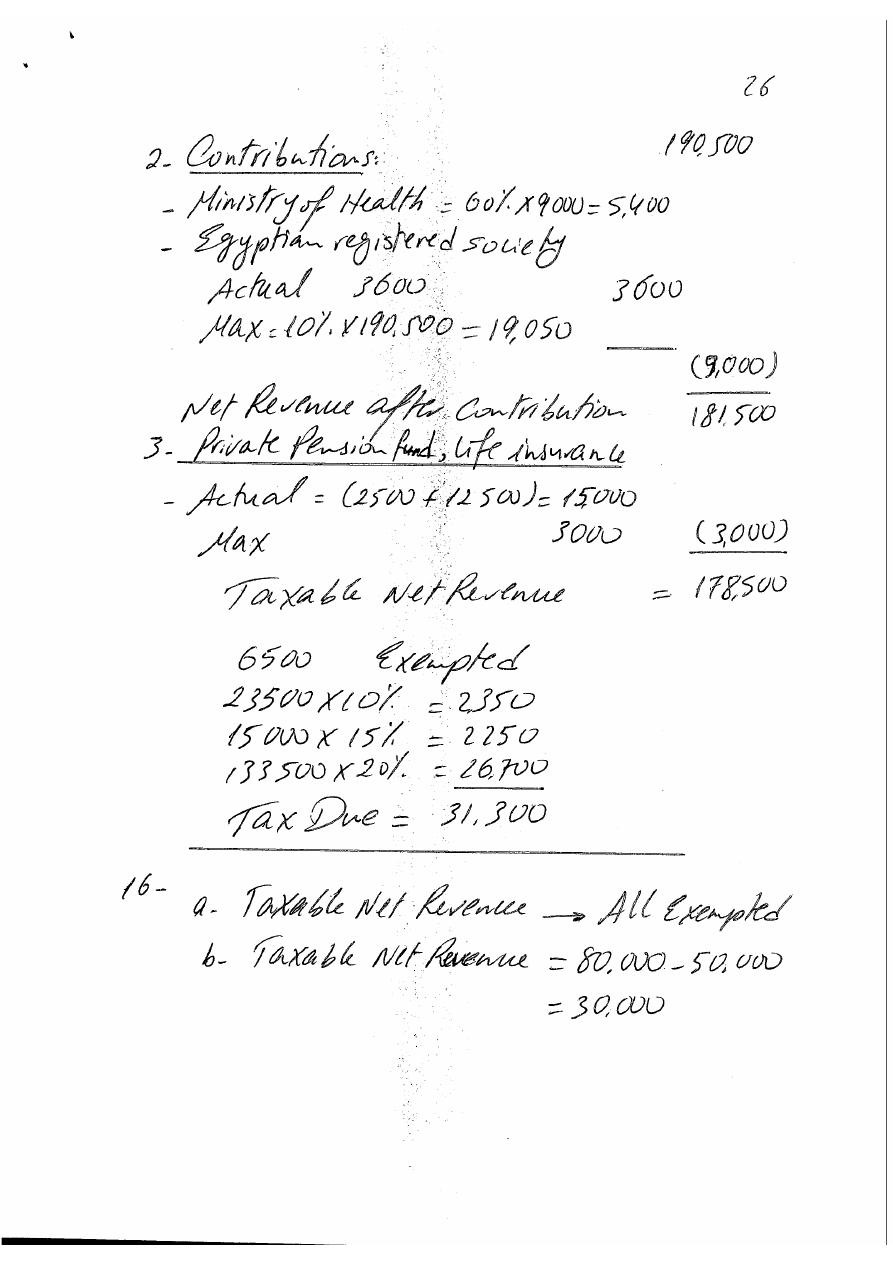 26
2- Contributions: 190,500
- Ministry of Health = 60% X 9000 = 5,400
- Egyptian registered society
Actual 3600 3600
Max = 10% X 190,500 = 19,050
(9,000)
Net Revenue after Contribution 181,500
3- Private Pension fund, Life insurance
- Actual = (2500 + 12500) = 15,000
Max 3000 (3,000)
Taxable Net Revenue = 178,500
6500 Exempted
23500 X 10% = 2,350
15000 X 15% = 2250
133500 X 20% = 26,700
Tax Due = 31,300
16- a- Taxable Net Revenue → All Exempted
b- Taxable Net Revenue = 80,000 - 50,000
= 30,000